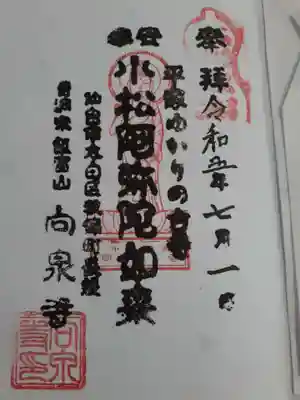 奉拝 令和五年七月一日
平家ゆかりの古寺
小松阿弥陀如来
仙台市太白区秋保町長袋
曹洞宗 向泉寺